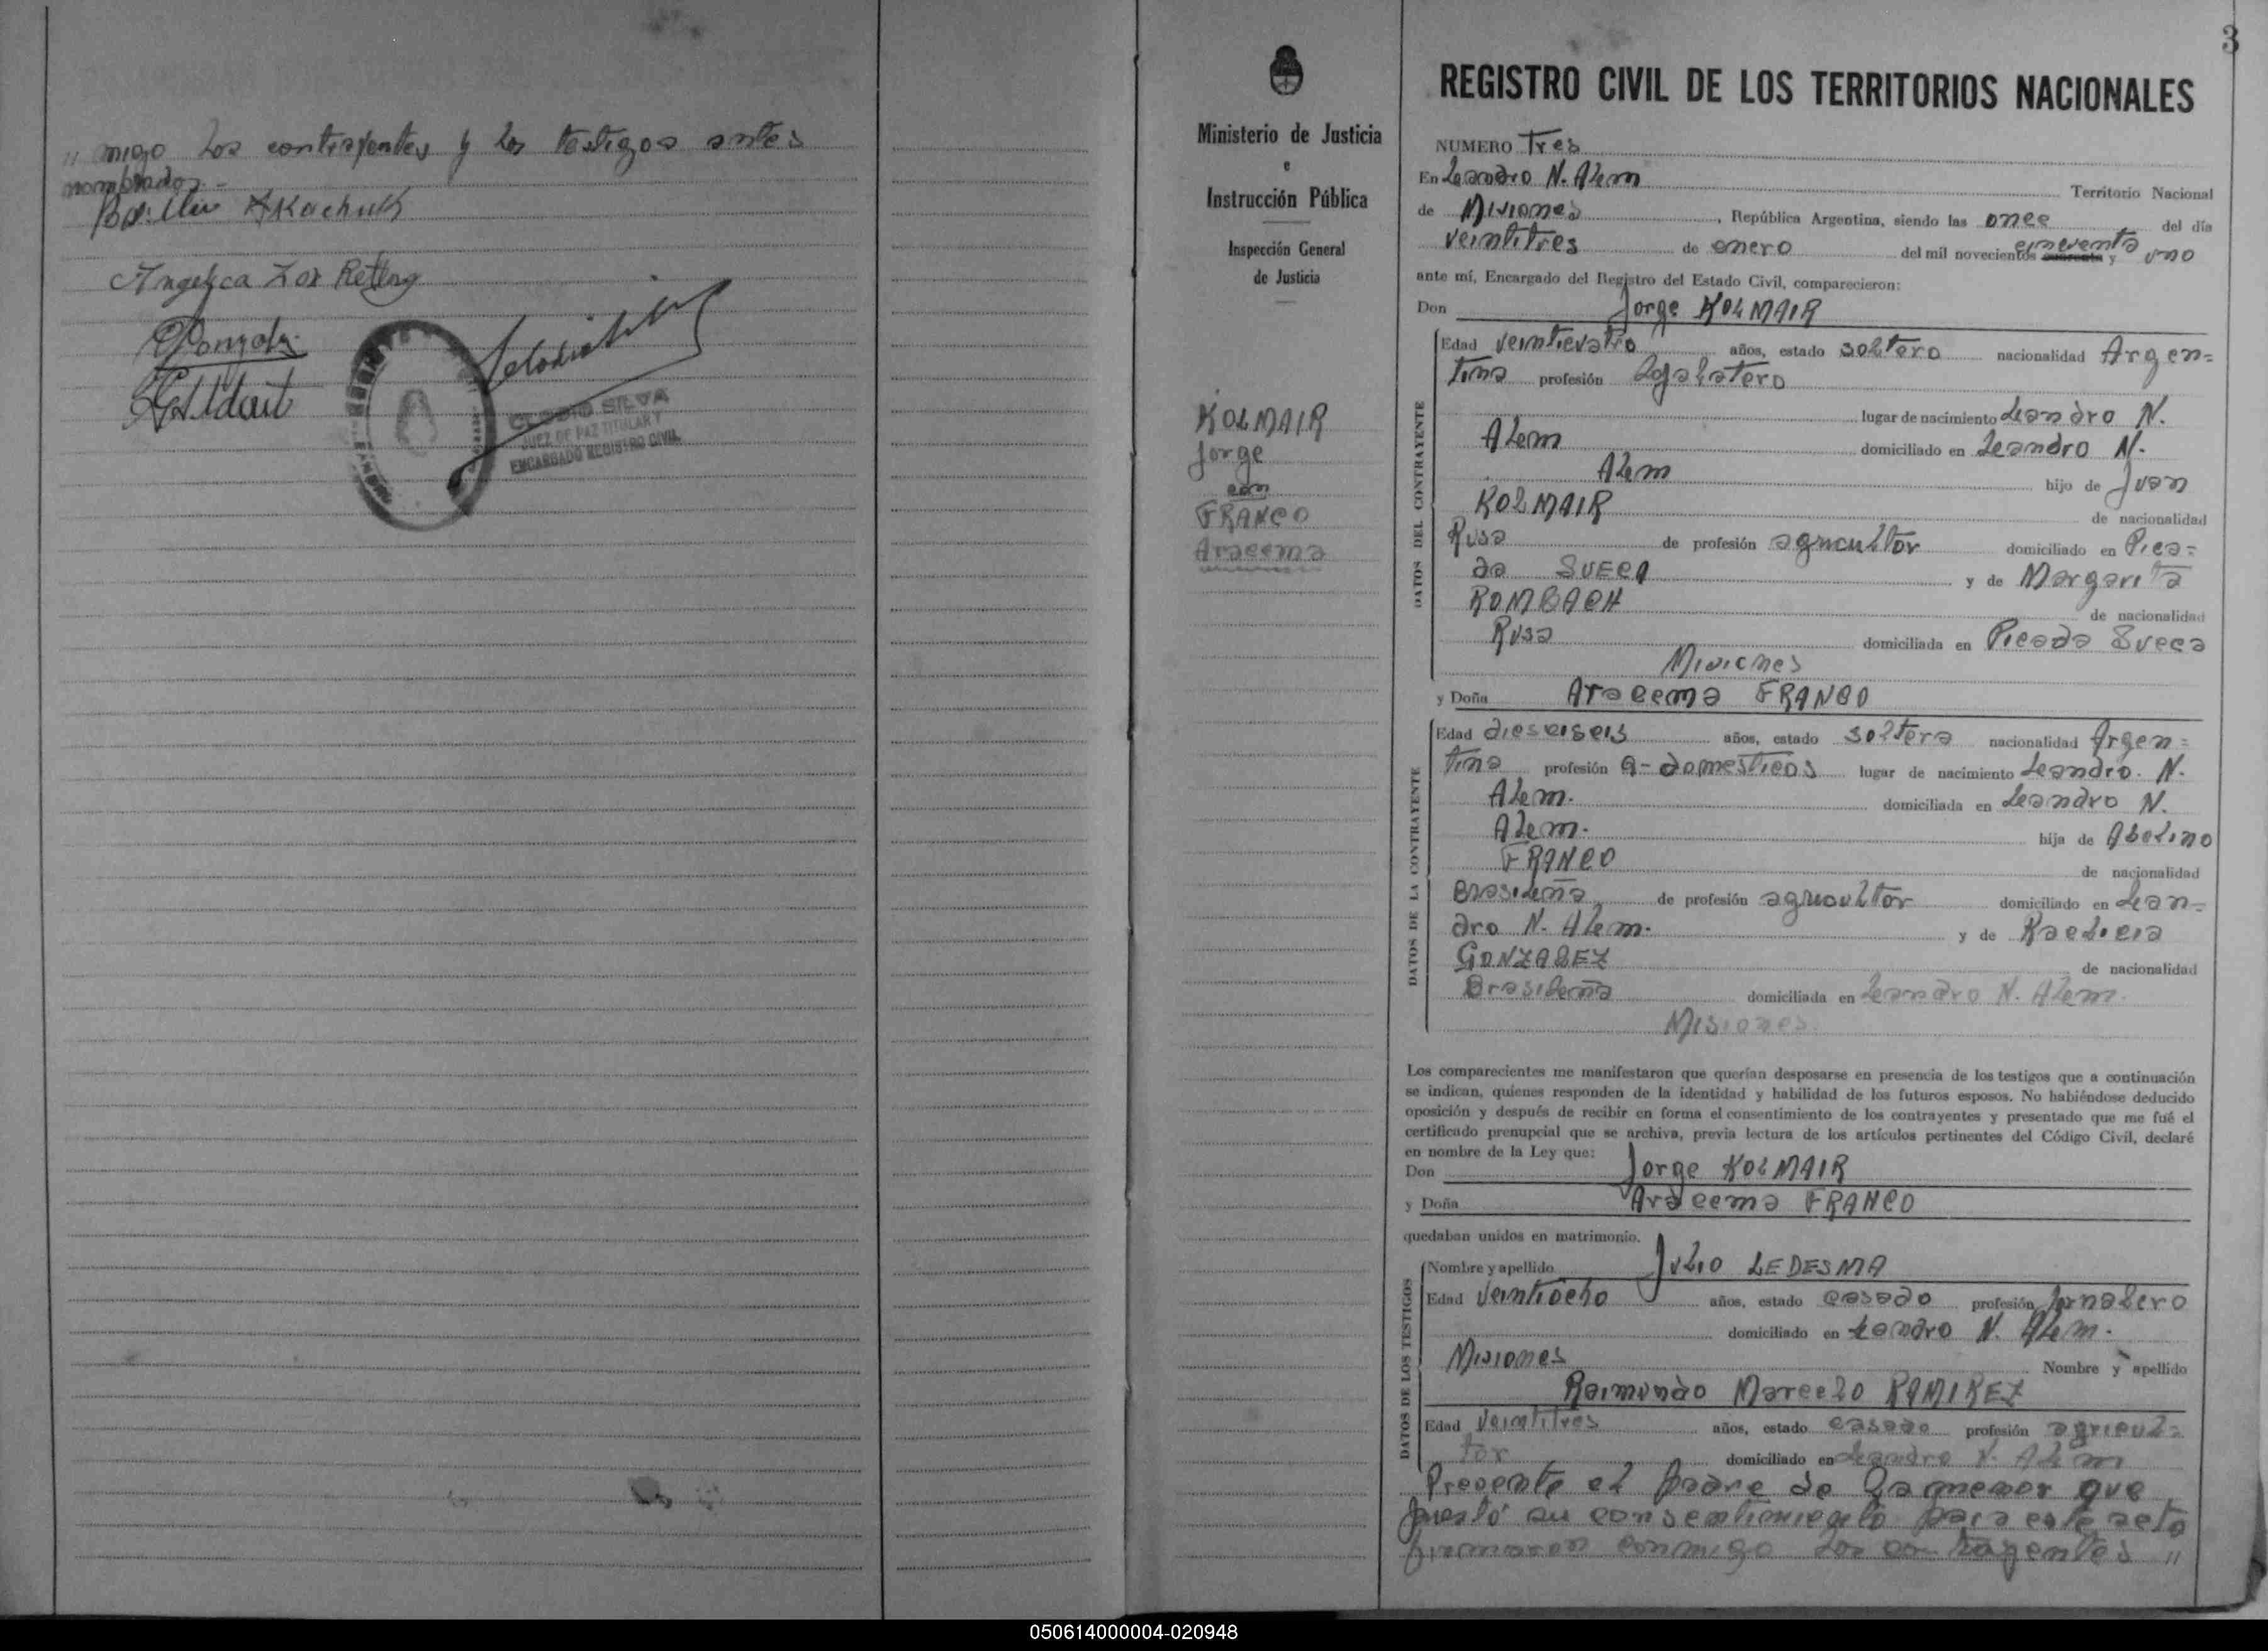 " migo los contrayentes y los testigos antes
nombrados.-
Angelica
CLODIO SILVA
JUEZ DE PAZ TITULAR Y
ENCARGADO REGISTRO CIVIL
3
Ministerio de Justicia
e
Instrucción Pública
Inspección General
de Justicia
KOLMAIR
Jorge
con
FRANCO
Aracema
REGISTRO CIVIL DE LOS TERRITORIOS NACIONALES
NUMERO Tres
En Leandro N. Alem Territorio Nacional
de Misiones, República Argentina, siendo las once del día
veintitres de enero del mil novecientos cuarenta cincuenta y uno
ante mí, Encargado del Registro del Estado Civil, comparecieron:
Don Jorge KOLMAIR
DATOS DEL CONTRAYENTE
Edad veinticuatro años, estado soltero nacionalidad Argen=
tina profesión
lugar de nacimiento Leandro N.
Alem domiciliado en Leandro N.
Alem hijo de Juan
KOLMAIR de nacionalidad
Rusa de profesión agricultor domiciliado en Pica=
da SUECA y de Margarita
ROMBACH de nacionalidad
Rusa domiciliada en Picada Sueca
Misiones
y Doña Aracema FRANCO
DATOS DE LA CONTRAYENTE
Edad dieseiseis años, estado soltera nacionalidad Argen=
tina profesión q-domesticos lugar de nacimiento Leandro. N.
Alem. domiciliada en Leandro N.
Alem. hija de Abelino
FRANCO de nacionalidad
Brasileña de profesión agricultor domiciliado en Lean-
dro N. Alem. y de Raelicia
GONZALEZ de nacionalidad
Brasileña domiciliada en Leandro N. Alem.
Misiones
Los comparecientes me manifestaron que querían desposarse en presencia de los testigos que a continuación
se indican, quienes responden de la identidad y habilidad de los futuros esposos. No habiéndose deducido
oposición y después de recibir en forma el consentimiento de los contrayentes y presentado que me fué el
certificado prenupcial que se archiva, previa lectura de los artículos pertinentes del Código Civil, declaré
en nombre de la Ley que:
Don Jorge KOLMAIR
y Doña Aracema FRANCO
quedaban unidos en matrimonio.
DATOS DE LOS TESTIGOS
Nombre y apellido Julio LEDESMA
Edad veintiocho años, estado casado profesión Jornalero
domiciliado en Leandro N. Alem.
Misiones Nombre y apellido
Raimundo Marcelo RAMIREZ
Edad veintitres años, estado casado profesión agricul=
tor domiciliado en Leandro N. Alem
Presente el padre de la menor que
prestó su consentimiento para este acto
firmaron conmigo los contrayentes "
050614000004-020948